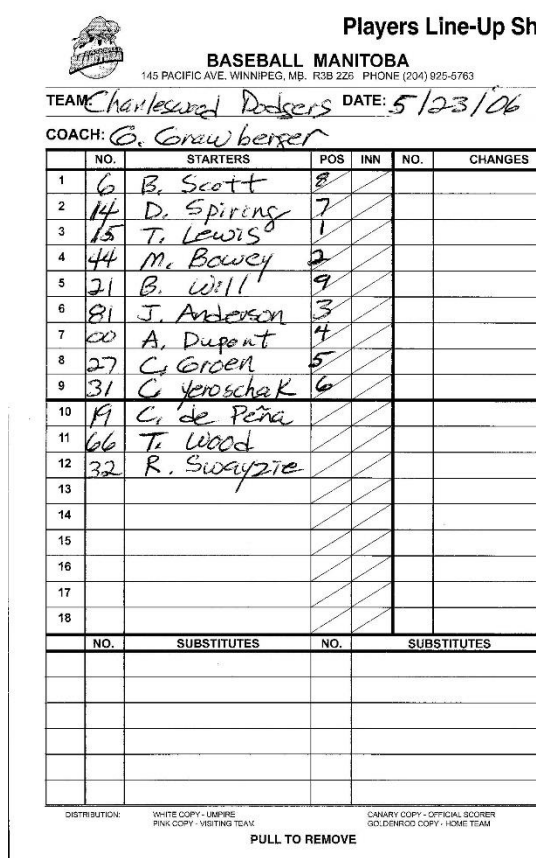 Players Line-Up Sh
BASEBALL MANITOBA
145 PACIFIC AVE. WINNIPEG, MB. R3B 2Z6 PHONE (204) 925-5763
TEAM: Charleswood Dodgers DATE: 5/23/06
COACH: G. Grawberger
NO. STARTERS POS INN NO. CHANGES
1 6 B. Scott 8
2 14 D. Spiring 7
3 15 T. Lewis 1
4 44 M. Bowey 2
5 21 B. Will 9
6 81 J. Anderson 3
7 00 A. Dupont 4
8 27 C. Groen 5
9 31 C. Yeroschak 6
10 19 C. de Peña
11 66 T. Wood
12 32 R. Swayzie
13
14
15
16
17
18
NO. SUBSTITUTES NO. SUBSTITUTES
DISTRIBUTION: WHITE COPY - UMPIRE CANARY COPY - OFFICIAL SCORER
PINK COPY - VISITING TEAM GOLDENROD COPY - HOME TEAM
PULL TO REMOVE